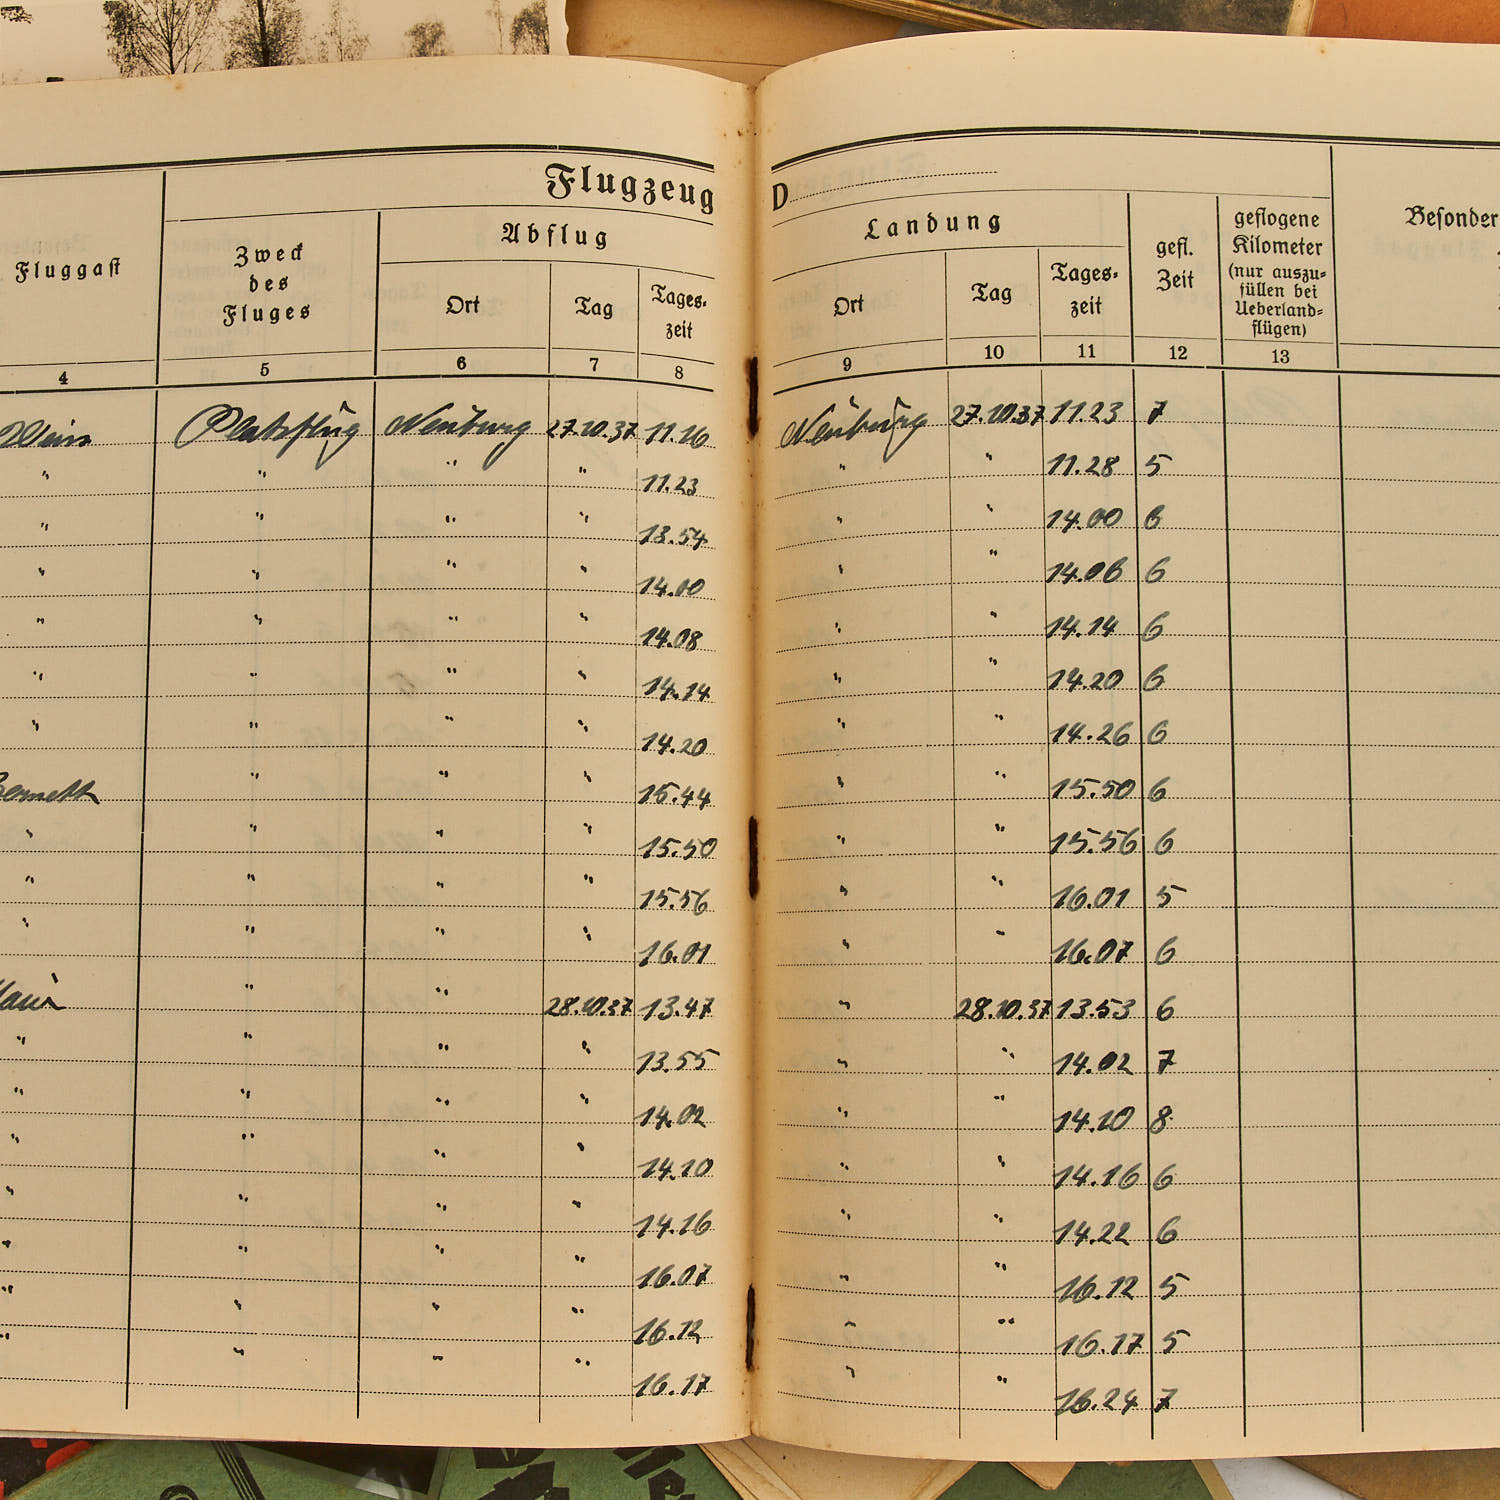 Flugzeug D
Fluggast Zweck des Fluges Abflug Landung gefl. Zeit geflogene Kilometer (nur auszufüllen bei Ueberlandflügen) Besonder
Ort Tag Tages-zeit Ort Tag Tages-zeit
4 5 6 7 8 9 10 11 12 13
Platzflug Neuburg 27.10.37 11.16 Neuburg 27.10.37 11.23 7
" " " " 11.23 " " 11.28 5
" " " " 13.54 " " 14.00 6
" " " " 14.00 " " 14.06 6
" " " " 14.08 " " 14.14 6
" " " " 14.14 " " 14.20 6
" " " " 14.20 " " 14.26 6
" " " 15.44 " " 15.50 6
" " " " 15.50 " " 15.56 6
" " " " 15.56 " " 16.01 5
" " " " 16.01 " " 16.07 6
" " 28.10.37 13.47 " 28.10.37 13.53 6
" " " " 13.55 " " 14.02 7
" " " " 14.02 " " 14.10 8
" " " " 14.10 " " 14.16 6
" " " " 14.16 " " 14.22 6
" " " " 16.07 " " 16.12 5
" " " " 16.12 " " 16.17 5
" " " " 16.17 " " 16.24 7